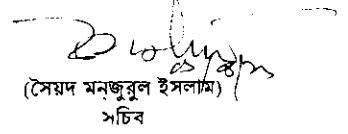 (সৈয়দ মনজুরুল ইসলাম)
সচিব